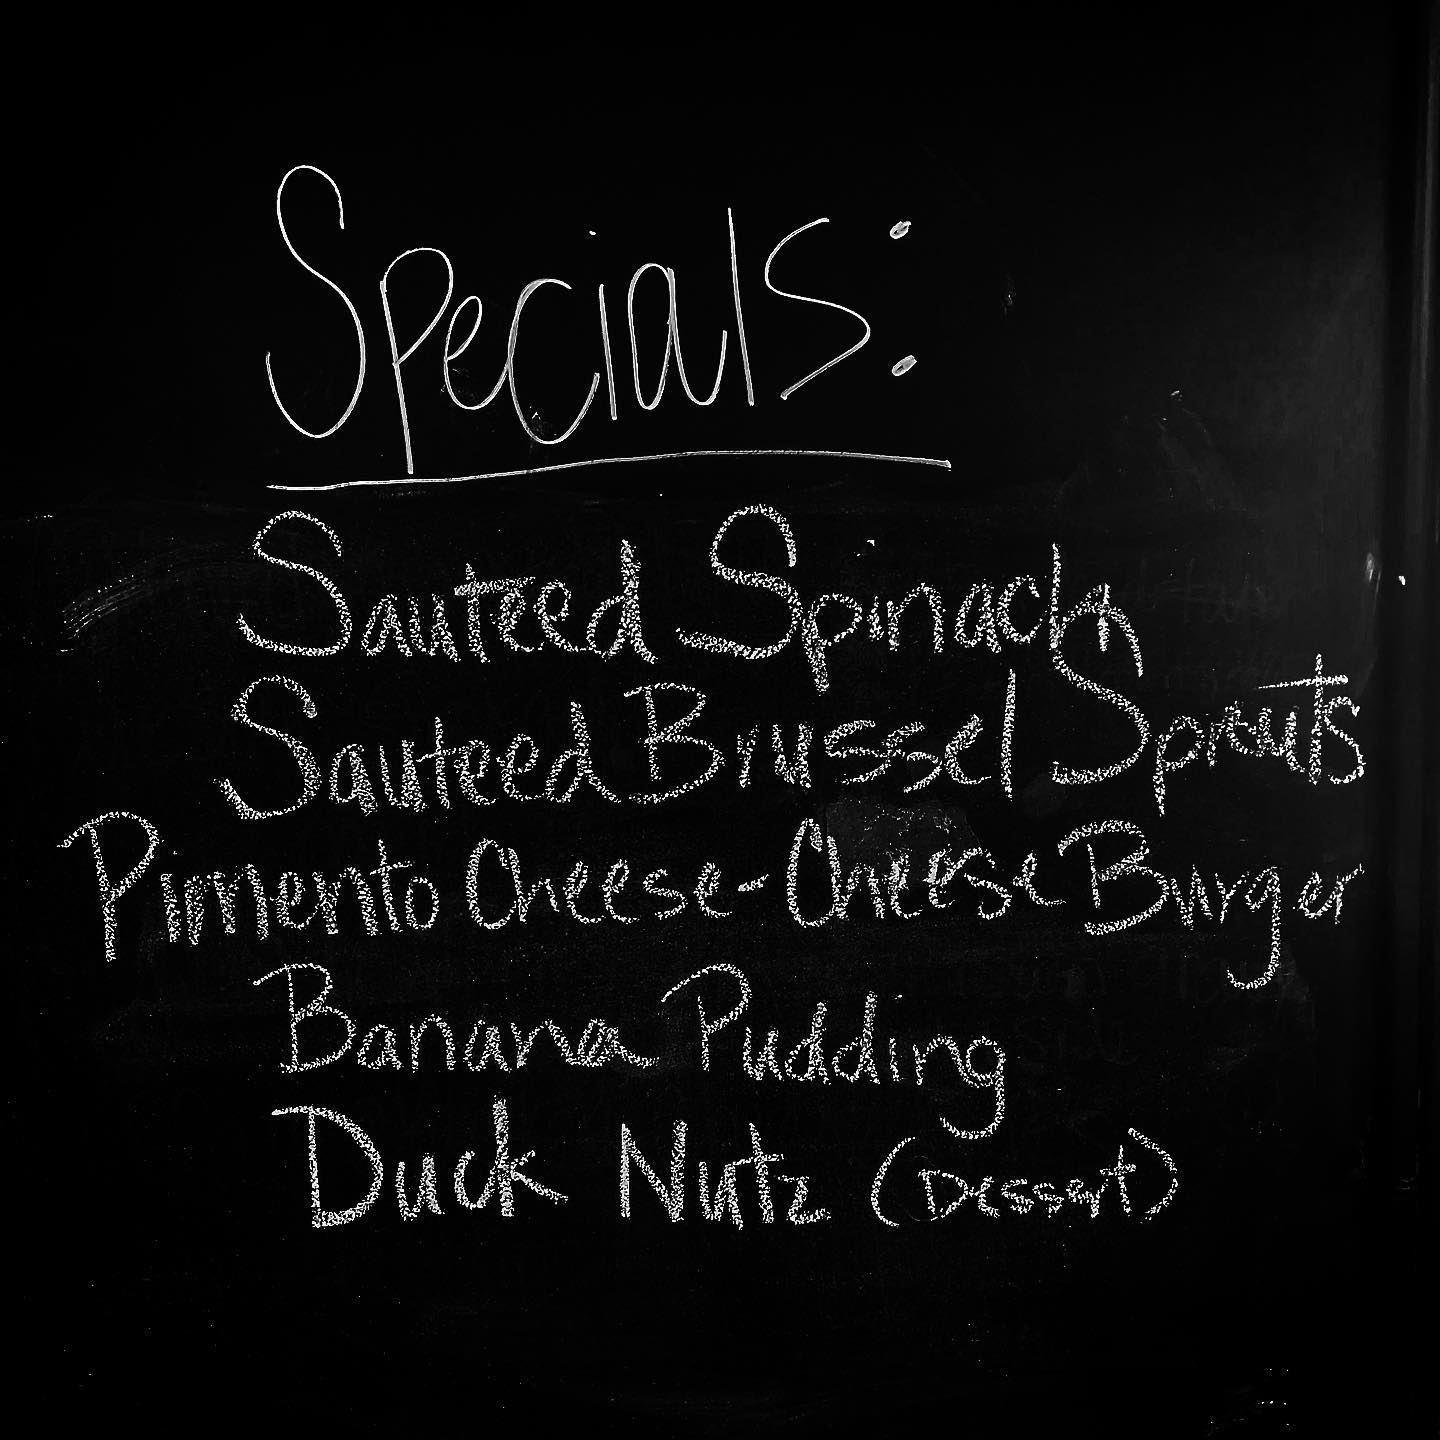 Specials:
Sauteed Spinach
Sauteed Brussel Sprouts
Pimento Cheese-Cheese Burger
Banana Pudding
Duck Nutz (Dessert)